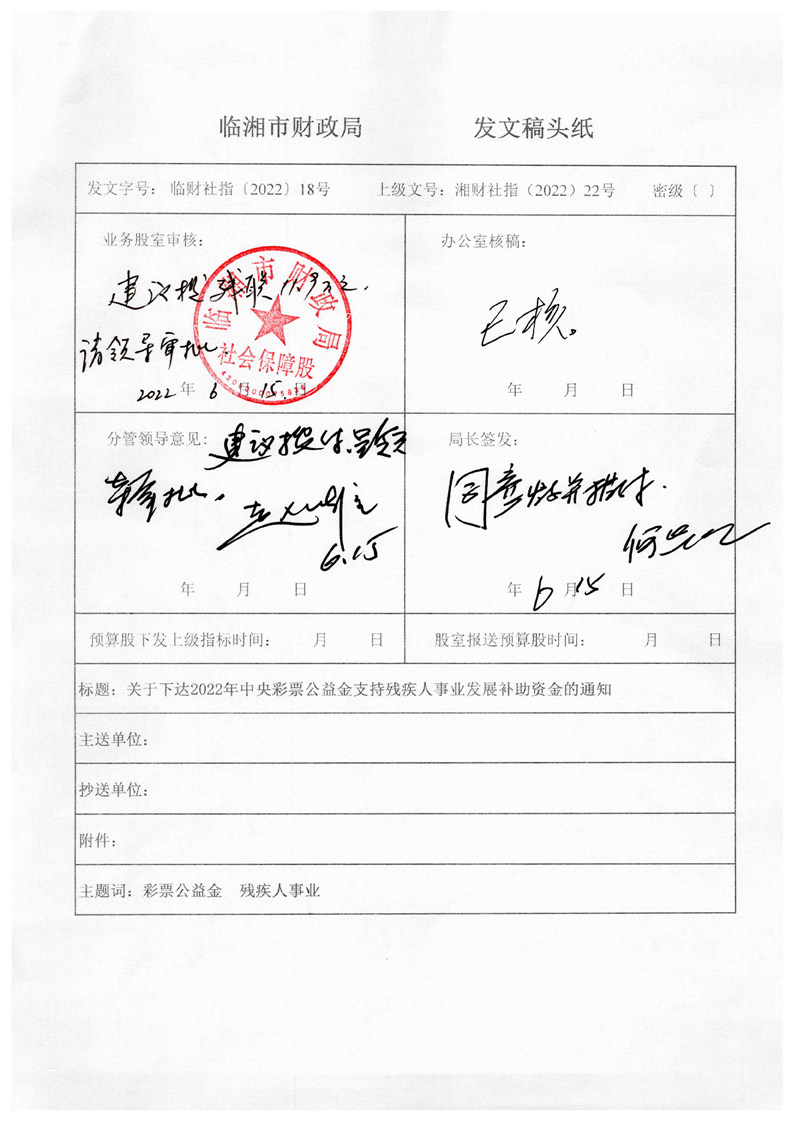 临湘市财政局 发文稿头纸
发文字号： 临财社指〔2022〕18号 上级文号：湘财社指（2022）22号 密级〔 〕
业务股室审核：
建议拨残联
请领导审批.
2022年6月15日
临湘市财政局
社会保障股
办公室核稿：
已核。
年 月 日
分管领导意见：建议拨付.呈领
审批.
6.15
年 月 日
局长签发：
同意 拨付.
年6月15日
预算股下发上级指标时间： 月 日
股室报送预算股时间： 月 日
标题：关于下达2022年中央彩票公益金支持残疾人事业发展补助资金的通知
主送单位：
抄送单位：
附件：
主题词：彩票公益金 残疾人事业